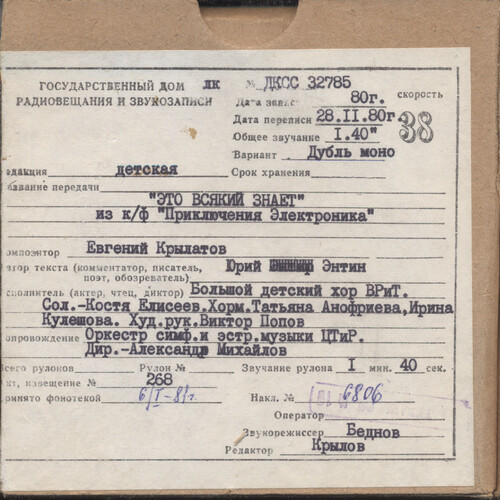 ГОСУДАРСТВЕННЫЙ ДОМ ЛК № ДКСС 32785
РАДИОВЕЩАНИЯ И ЗВУКОЗАПИСИ
скорость
38
Дата запис 80г.
Дата переписи 28.II.80г
Общее звучание I.40"
Вариант Дубль моно
едакция детская Срок хранения
азвание передачи
"ЭТО ВСЯКИЙ ЗНАЕТ"
из к/ф "Приключения Электроника"
омпозитор Евгений Крылатов
втор текста (комментатор, писатель, поэт, обозреватель) Юрий Энтин
сполнитель (актер, чтец, диктор) Большой детский хор ВРиТ.
Сол.-Костя Елисеев.Хорм.Татьяна Анофриева,Ирина
Кулешова. Худ.рук.Виктор Попов
опровождение Оркестр симф.и эстр.музыки ЦТиР.
Дир.-Александр Михайлов
сего рулонов Рулон № Звучание рулона I мин. 40 сек.
кт, извещение № 268
ринято фонотекой 6/I-81г. Накл. № 6806
Оператор
Звукорежиссер Беднов
Редактор Крылов